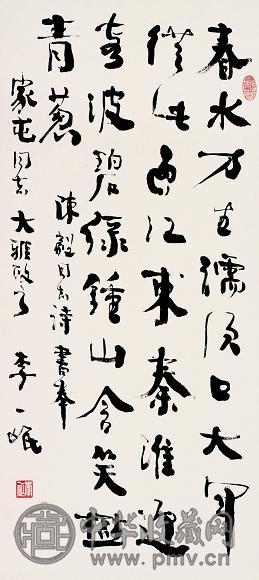 春水方生濡須口大軍
從此過江東秦淮迎
波碧綠鍾山含笑
青蔥
陳毅同志詩 書奉
家屯同志大雅政之 李一氓
中华收藏网
www.pmv.cn